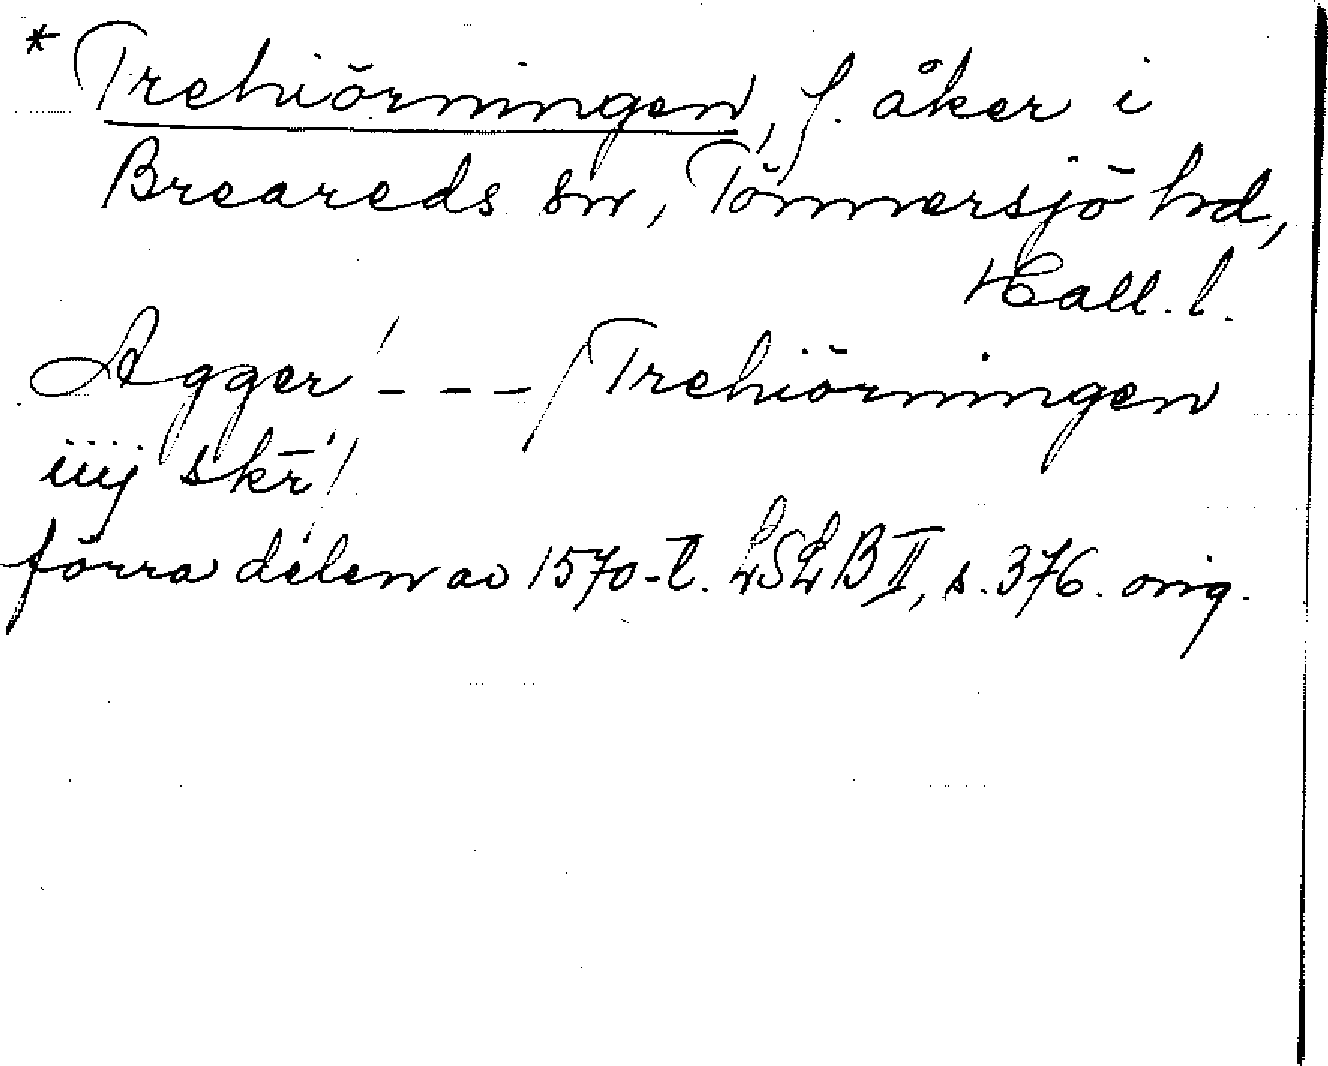 * Trehiörningen, f. åker i
Breareds sn, Tönnersjö hd,
Hall. l.
Agger! - - - / Trehiörningen
iiij skr̄!
förra delen av 1570-t. LSLB II, s. 376. orig.